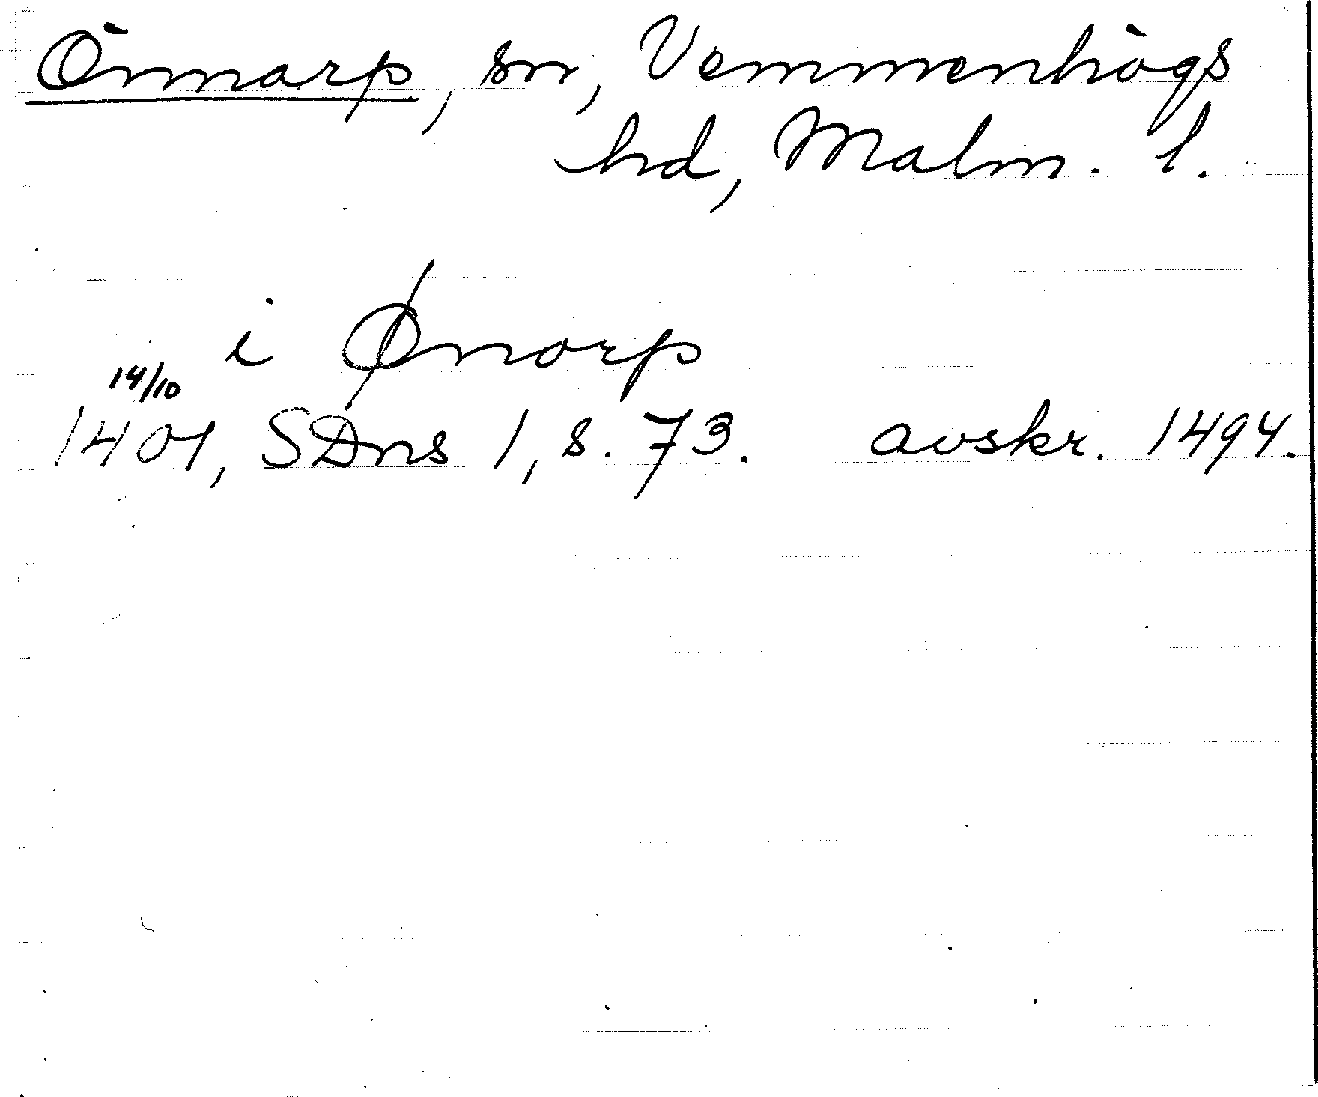 Önnarp, sn, Vemmenhögs
hd, Malm. l.
i Ønorp
14/10
1401, SDns 1, s. 73. avskr. 1494.